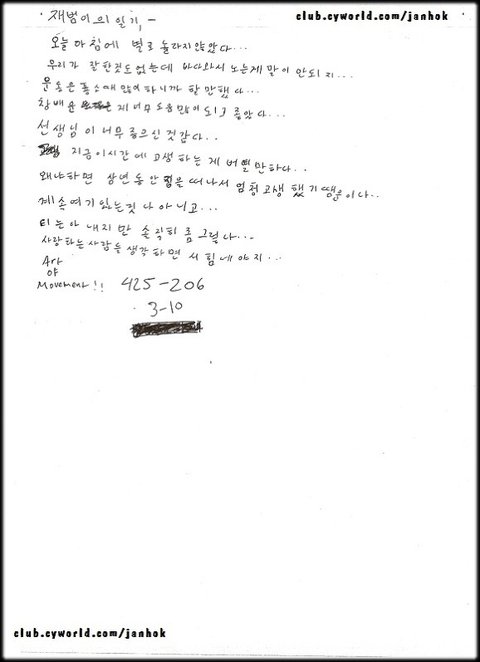 club.cyworld.com/janhok
재범이의 일기 -
오늘 아침에 별로 놀라지않았다...
우리가 잘한것도없는데 바다와서 노는게 말이 안되지...
운동은 평소에 많이 하니까 할만했다...
선생님이 너무 좋으신 것같다..
지금이시간에 고생하는 게 버틸만하다..
왜냐하면 상년동안 집을 떠나서 엄청고생 했기 때문이다..
계속여기있는것 다 아니고...
티는 아 내지만 솔직히 좀 그렇다...
사랑하는사람들 생각하면서 힘내야지...
Art
of
Movement!! 425-206
3-10
club.cyworld.com/janhok